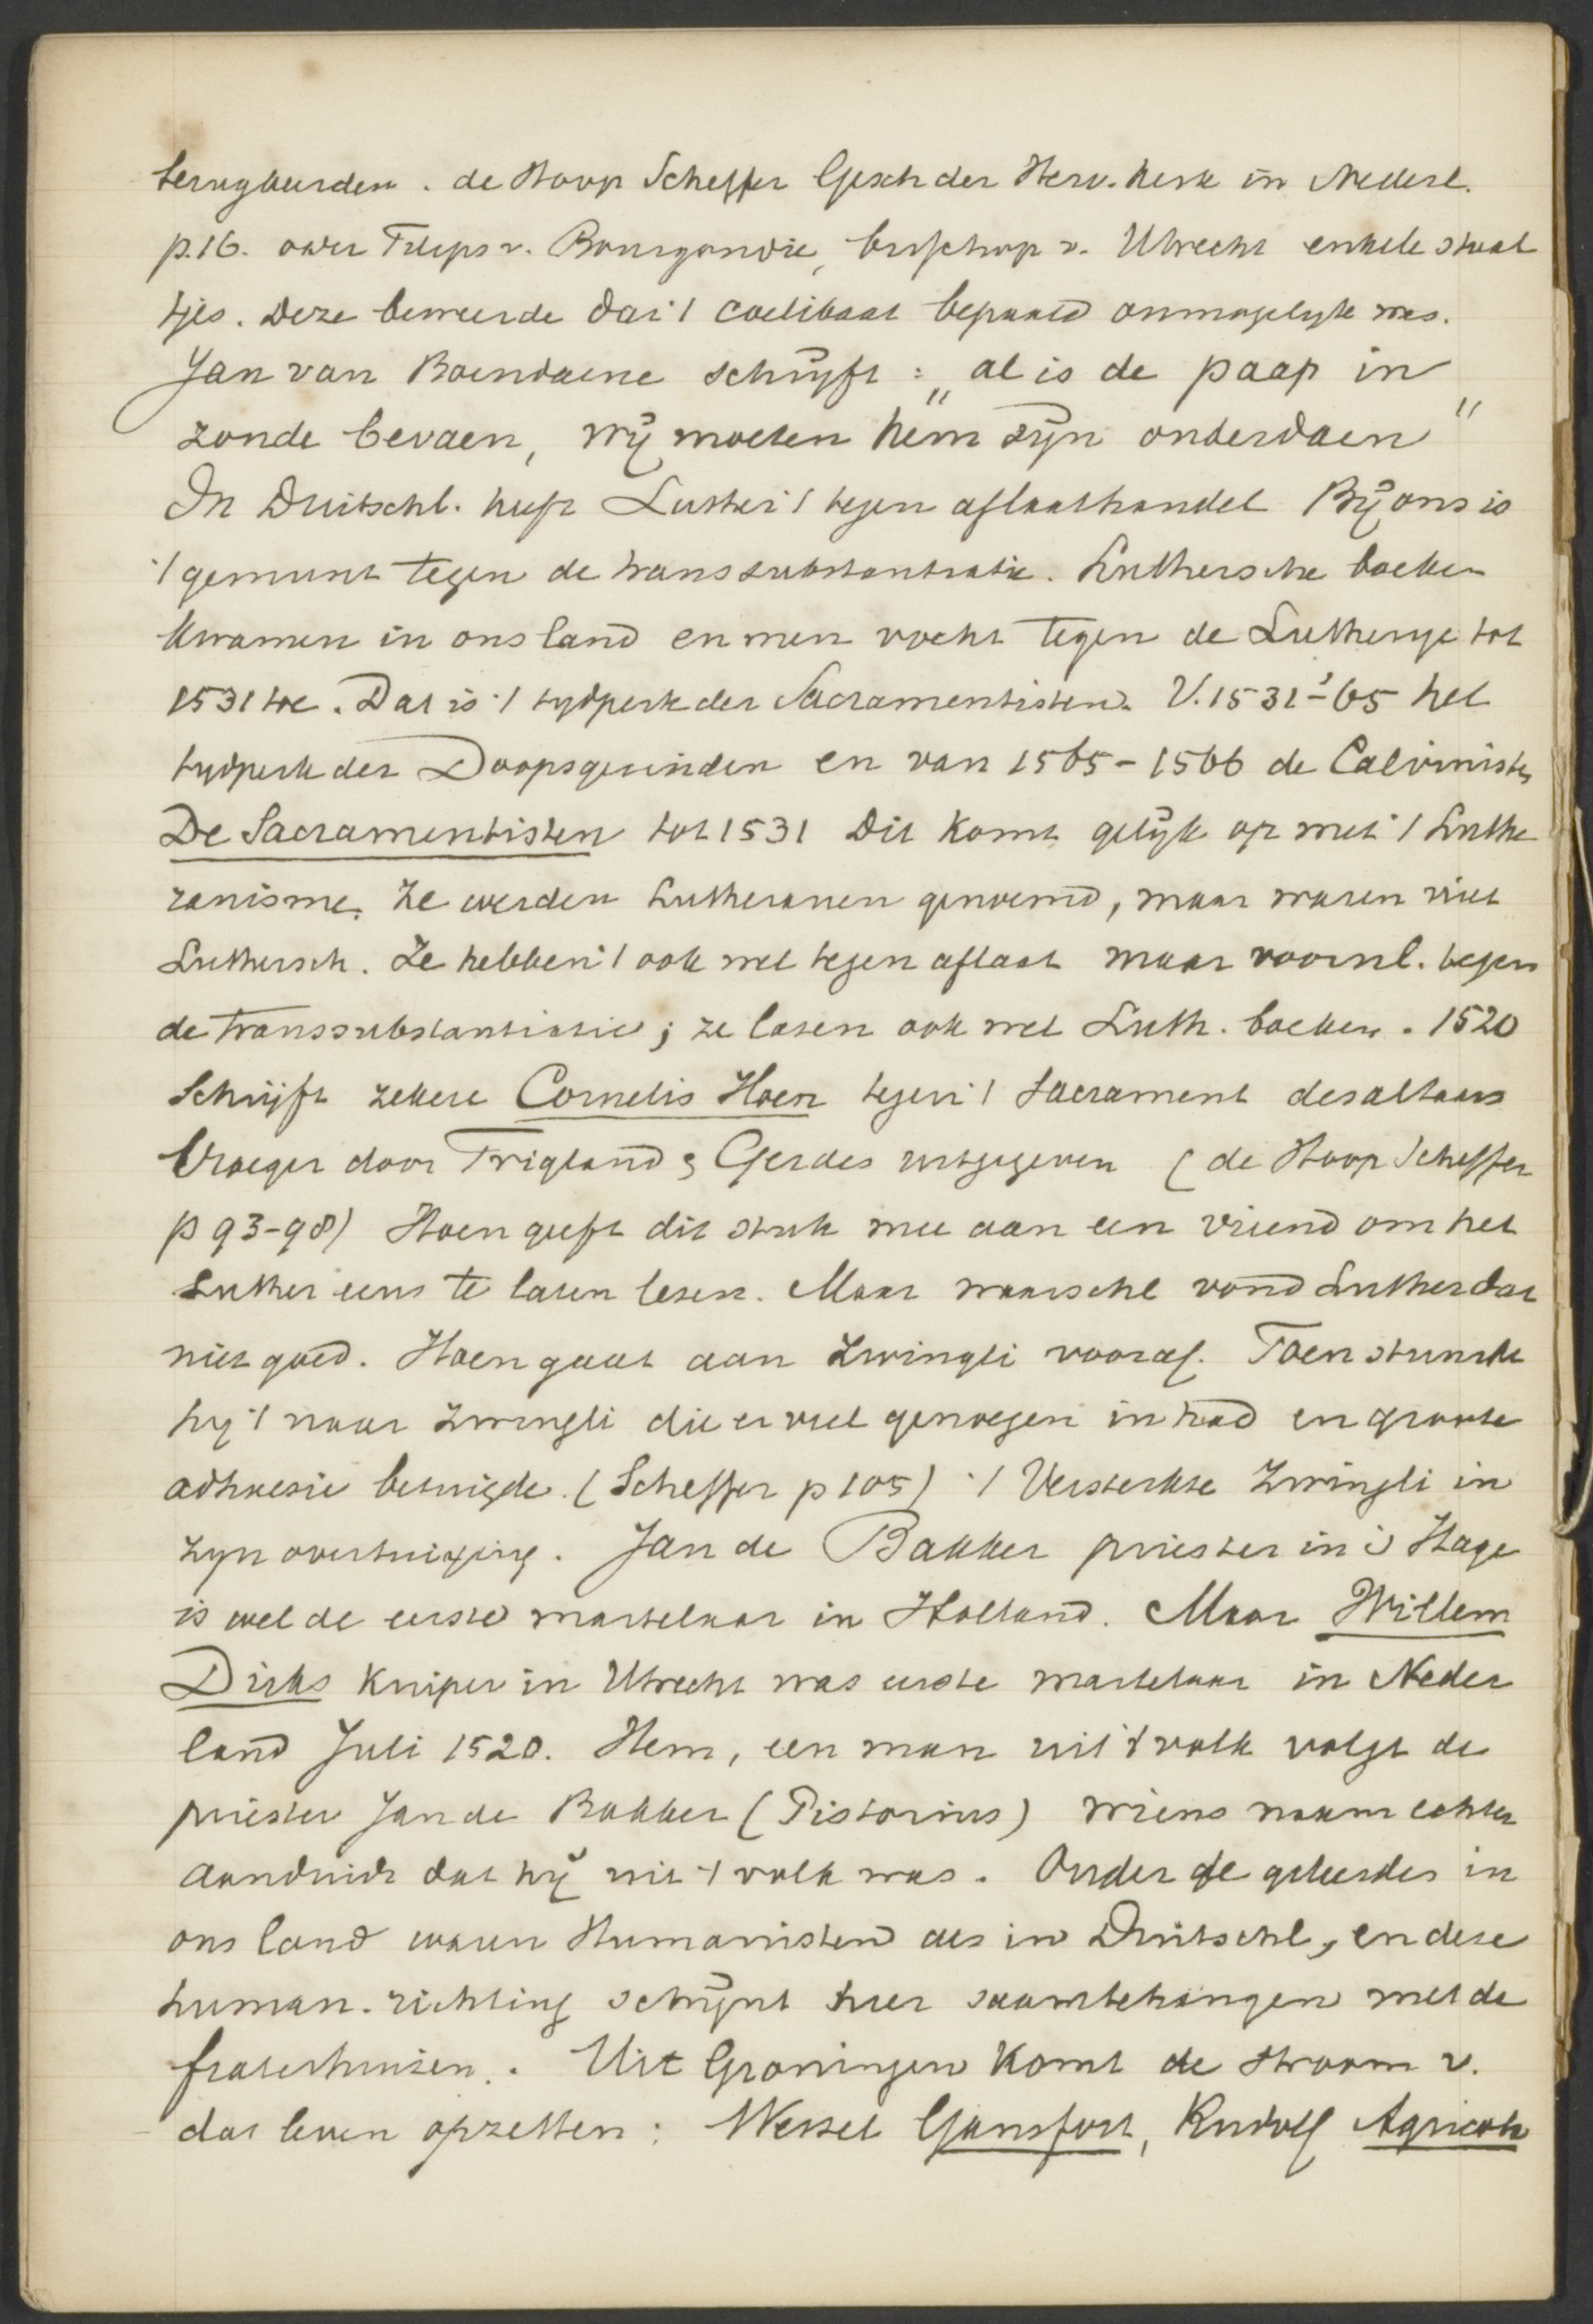 terugkeerden. de Hoop Scheffer Gesch der Herv. Kerk in Nederl.
p. 16. over Filips v. Bourgondie, bisschop v. Utrecht enkele staal
tjes. Deze beweerde dat 't coelibaat bepaald onmogelijk was.
Jan van Boendaene schrijft: „al is de paap in
zonde bevaen, wij moeten hem zijn onderdaen"
In Duitschl. heeft Luther 't tegen aflaathandel Bij ons is
't gemunt tegen de transsubstantiatie. Luthersche boeken
kwamen in ons land en men vocht tegen de Lutherye tot
1531 toe. Dat is 't tydperk der Sacramentisten. V. 1531-'65 het
tydperk der Doopsgezinden en van 1565-1566 de Calvinisten
De Sacramentisten tot 1531 Dit komt gelijk op met 't Luthe
ranisme. Ze werden Lutheranen genoemd, maar waren niet
Luthersch. Ze hebben 't ook wel tegen aflaat maar voornl. tegen
de transsubstantiatie; ze lazen ook wel Luth. boeken. 1520
Schrijft zekere Cornelis Hoen tegen 't Sacrament des altaars
Vroeger door Trigland & Gerdes uitgegeven (de Hoop Scheffer
p 93-98) Hoen geeft dit stuk mee aan een vriend om het
Luther eens te laten lezen. Maar waarschl vond Luther dat
niet goed. Hoen gaat aan Zwingli vooraf. Toen stuurde
hij 't naar Zwingli die er veel genoegen in had en groote
adhaesie betuigde. (Scheffer p 105) 't Versterkte Zwingli in
zyn overtuiging. Jan de Bakker priester in 's Hage
is wel de eerste martelaar in Holland. Maar Willem
Dirks kuiper in Utrecht was eerste martelaar in Neder
land Juli 1520. Hem, een man uit 't volk volgt de
priester Jan de Bakker (Pistorius) wiens naam echter
aanduidt dat hij uit 't volk was. Onder de geleerdes in
ons land waren Humanisten als in Duitschl, en deze
human. richting schijnt hier saamtehangen met de
fraterhuizen. Uit Groningen komt de stroom v.
dat leven opzetten: Wessel Gansfort, Rudolf Agricola